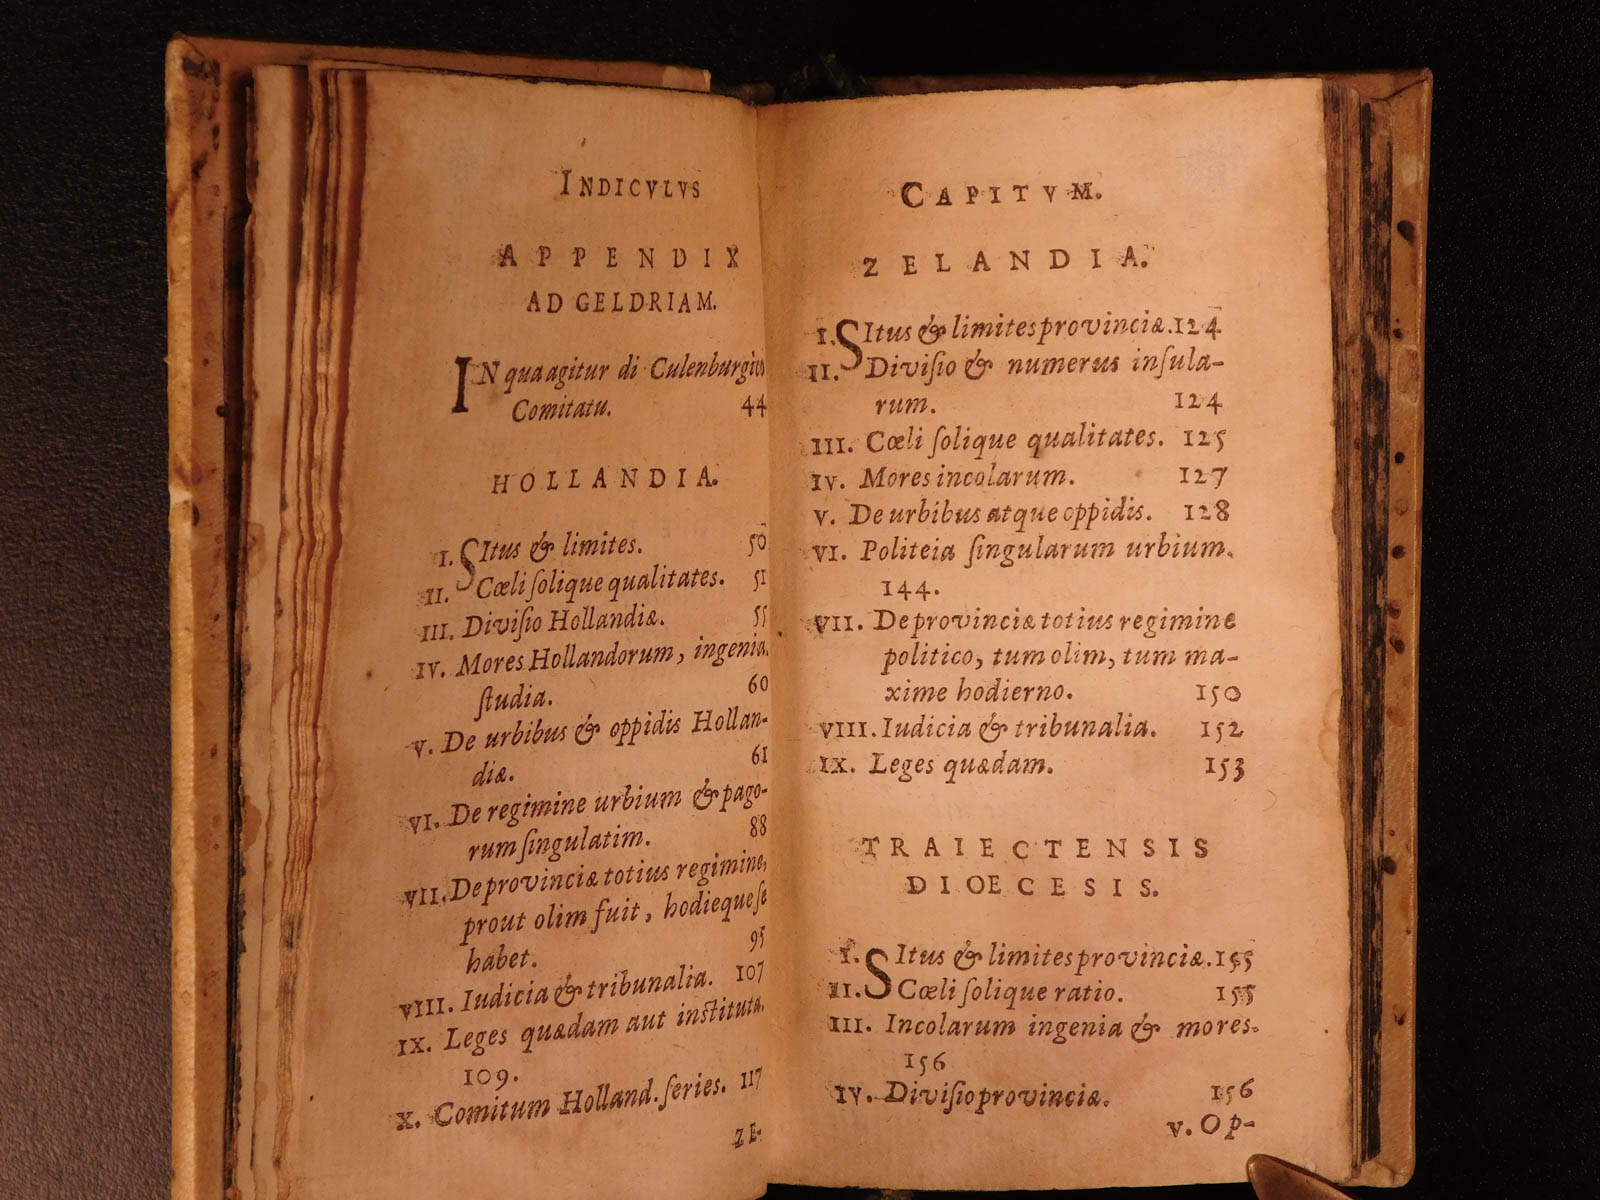 INDICVLVS
APPENDIX
AD GELDRIAM.
IN qua agitur di Culenburgico
Comitatu. 44
HOLLANDIA.
I. SItus & limites. 50
II. Cœli ſolique qualitates. 51
III. Diviſio Hollandiæ. 55
IV. Mores Hollandorum, ingenia,
ſtudia. 60
V. De urbibus & oppidis Hollan-
diæ. 61
VI. De regimine urbium & pago-
rum ſingulatim. 88
VII. De provinciæ totius regimine,
prout olim fuit, hodieque ſe
habet. 95
VIII. Iudicia & tribunalia. 107
IX. Leges quædam aut inſtituta.
109.
X. Comitum Holland. ſeries. 117
ZE-
CAPITVM.
ZELANDIA.
I. SItus & limites provinciæ. 124
II. Diviſio & numerus inſula-
rum. 124
III. Cœli ſolique qualitates. 125
IV. Mores incolarum. 127
V. De urbibus atque oppidis. 128
VI. Politeia ſingularum urbium.
144.
VII. De provinciæ totius regimine
politico, tum olim, tum ma-
xime hodierno. 150
VIII. Iudicia & tribunalia. 152
IX. Leges quædam. 153
TRAIECTENSIS
DIOECESIS.
I. SItus & limites provinciæ. 155
II. Cœli ſolique ratio. 155
III. Incolarum ingenia & mores.
156
IV. Diviſio provinciæ. 156
V. Op-